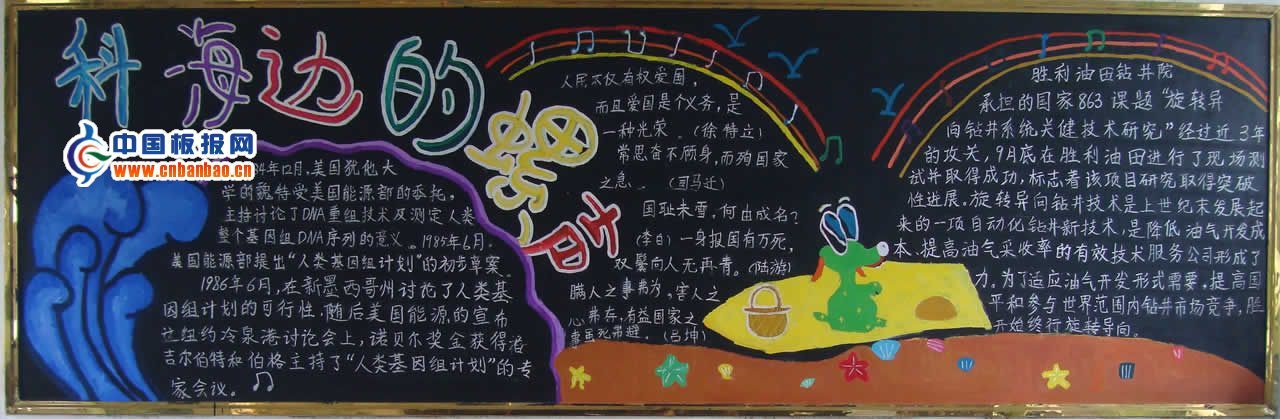 科海边的
中国板报网
www.cnbanbao.cn
年12月,美国犹他大
学的魏特受美国能源部的委托,
主持讨论了DNA重组技术及测定人类
整个基因组DNA序列的意义。1985年6月,
美国能源部提出“人类基因组计划”的初步草案。
1986年6月,在新墨西哥州讨论了人类基
因组计划的可行性,随后美国能源的宣布
这纽约冷泉港讨论会上,诺贝尔奖金获得港
吉尔伯特和伯格主持了“人类基因组计划”的专
家会议。
人民不仅有权爱国,
而且爱国是个义务,是
一种光荣。(徐特立)
常思奋不顾身,而殉国家
之急。(司马迁)
国耻未雪,何由成名?
(李白)一身报国有万死,
双鬓向人无再青。(陆游)
瞒人之事弗为,害人之
心弗存,有益国家之
事虽死弗避。(吕坤)
胜利油田钻井院
承担的国家863课题“旋转导
向钻井系统关健技术研究”经过近3年
的攻关,9月底在胜利油田进行了现场测
试并取得成功,标志着该项目研究取得突破
性进展。旋转导向钻井技术是上世纪末发展起
来的一项自动化钻井新技术,是降低油气开发成
本、提高油气采收率的有效技术服务公司形成了
力。为了适应油气开发形式需要,提高国
平和参与世界范围内钻井市场竞争,胜
开始终行旋转导向。